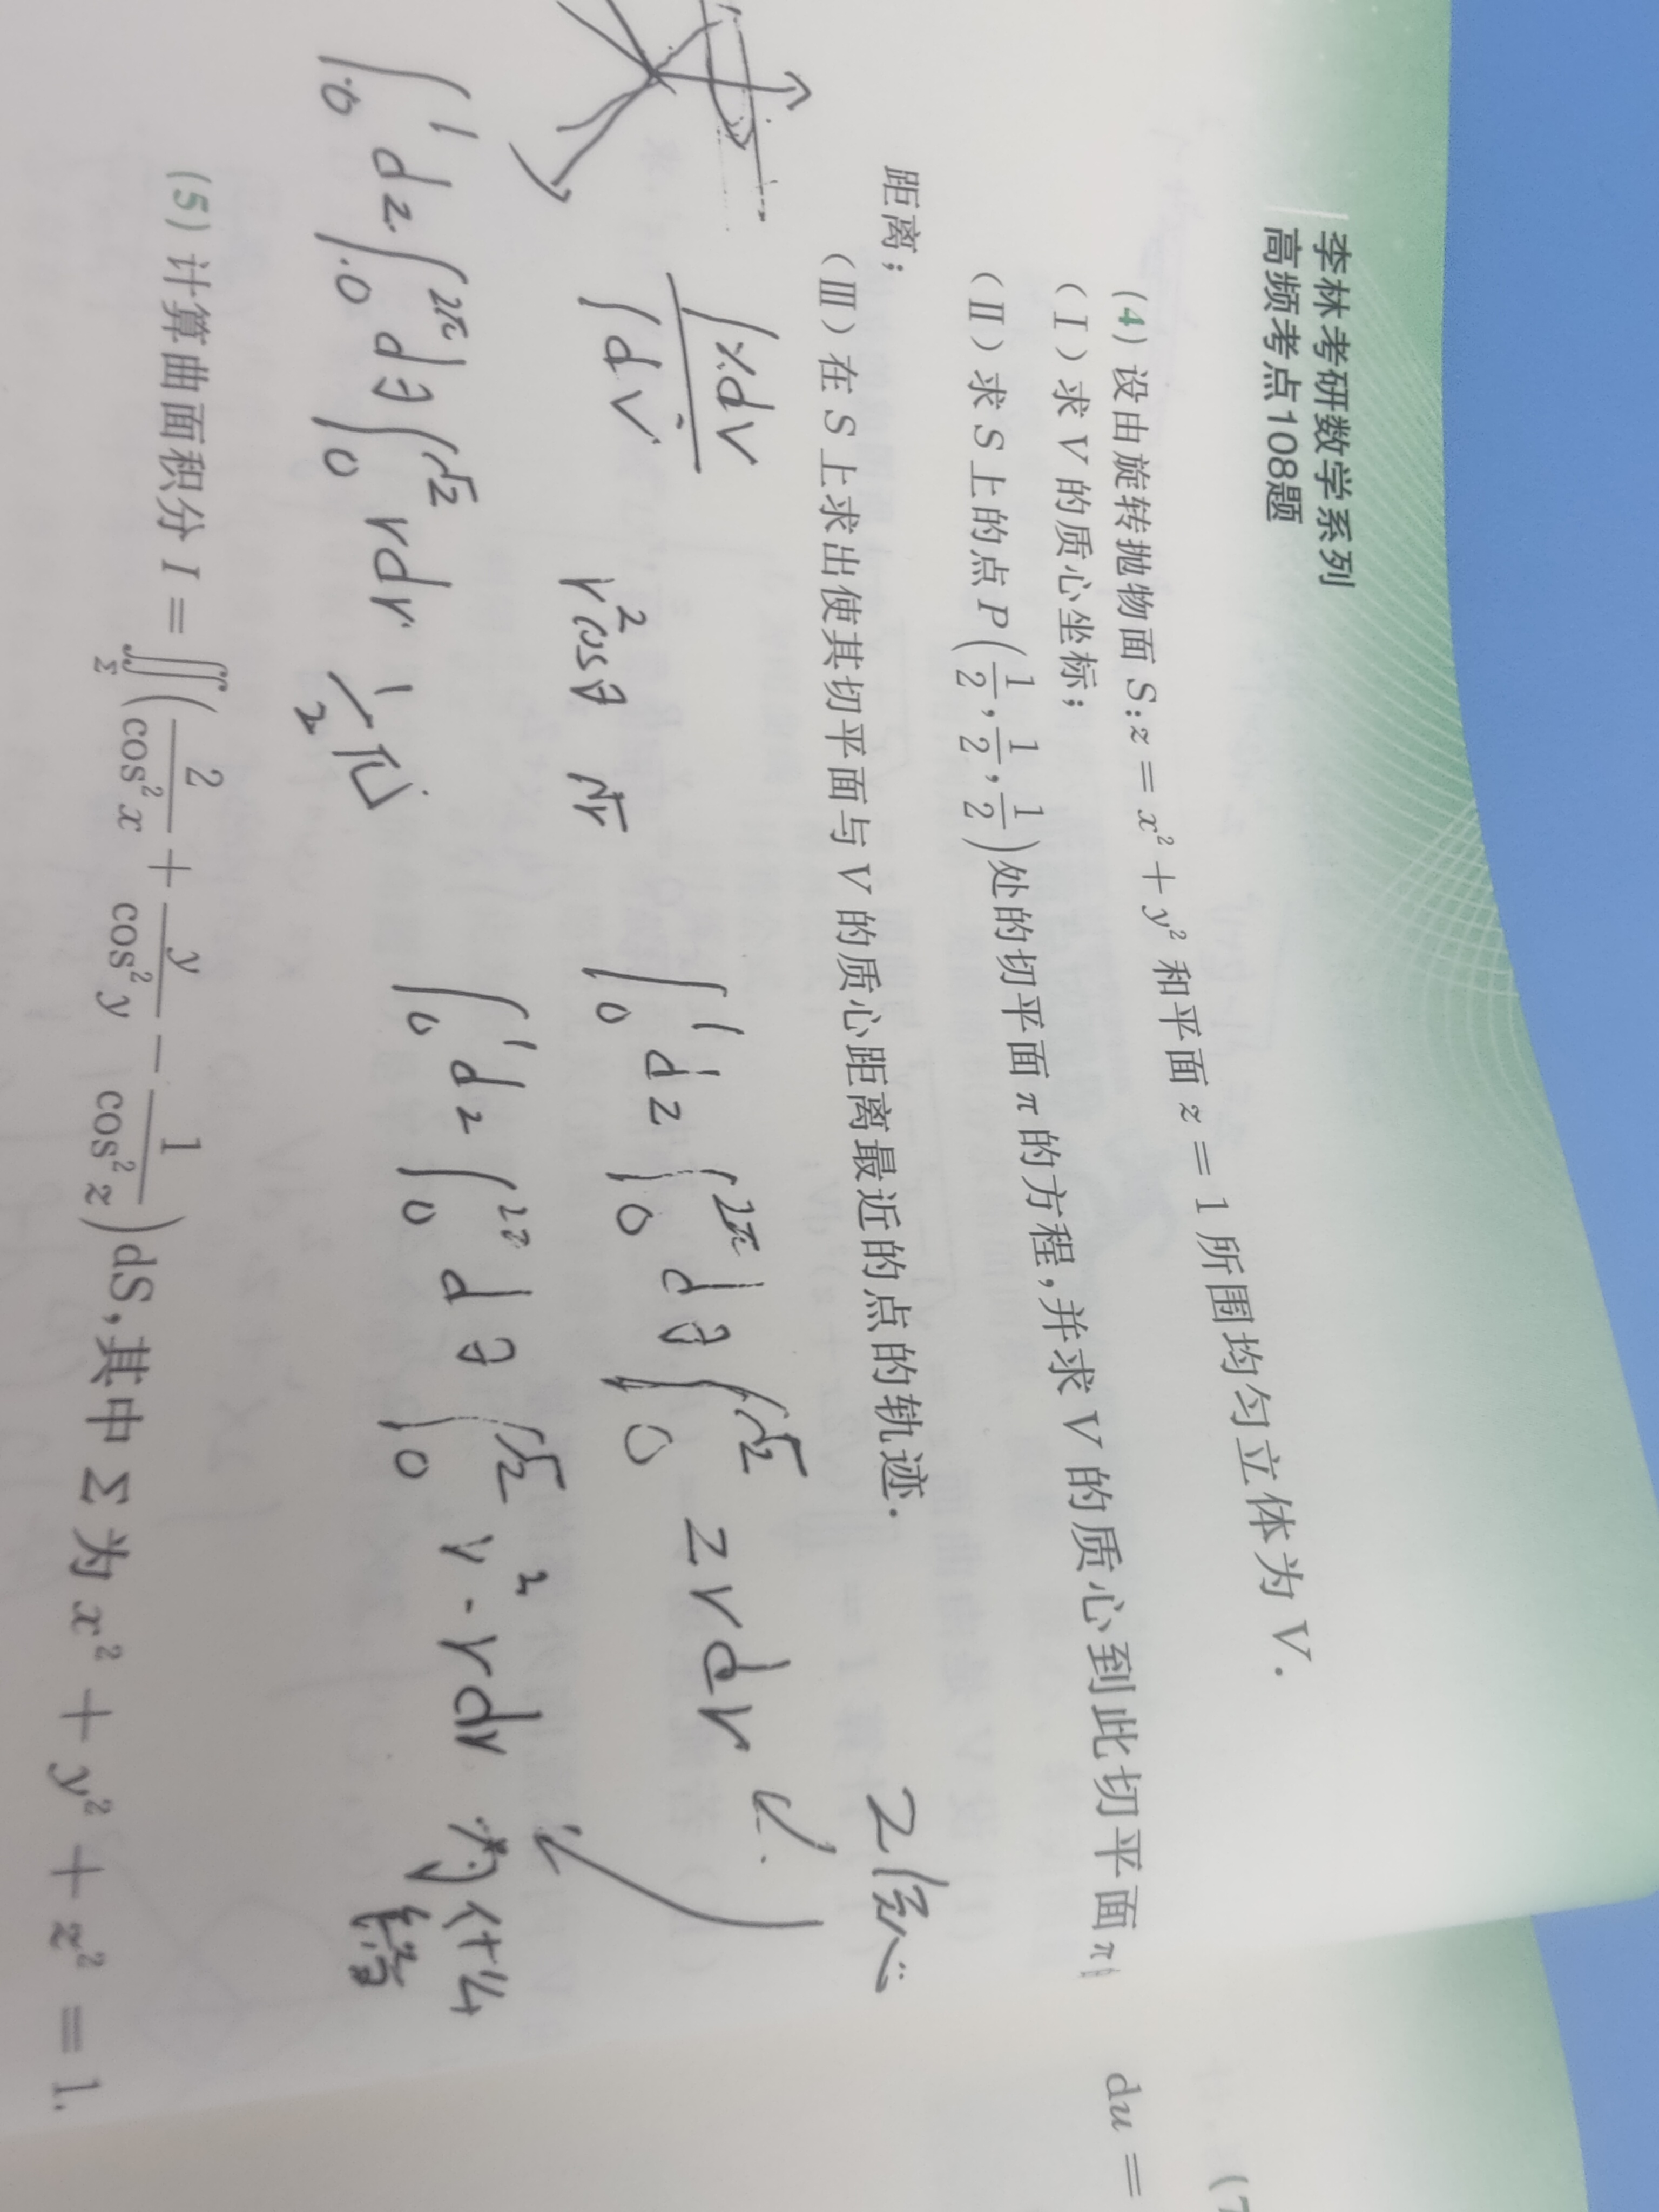 李林考研数学系列
高频考点108题
(4) 设由旋转抛物面 S:z = x² + y² 和平面 z = 1 所围均匀立体为 V.
(Ⅰ) 求 V 的质心坐标;
(Ⅱ) 求 S 上的点 P(1/2, 1/2, 1/2) 处的切平面 π 的方程,并求 V 的质心到此切平面 π
距离;
(Ⅲ) 在 S 上求出使其切平面与 V 的质心距离最近的点的轨迹.
∫xdV
∫dV
r²cosθ √r
∫₀¹ dz ∫₀^2π dθ ∫₀^√z z r dr
∫₀¹ dz ∫₀^2π dθ ∫₀^√z rdr
1/2 π
∫₀¹ dz ∫₀^2π dθ ∫₀^√z r² · r dr 为什么
(5) 计算曲面积分 I = ∬_Σ (2/cos²x + y/cos²y − 1/cos²z) dS,其中 Σ 为 x² + y² + z² = 1.
du =
(7